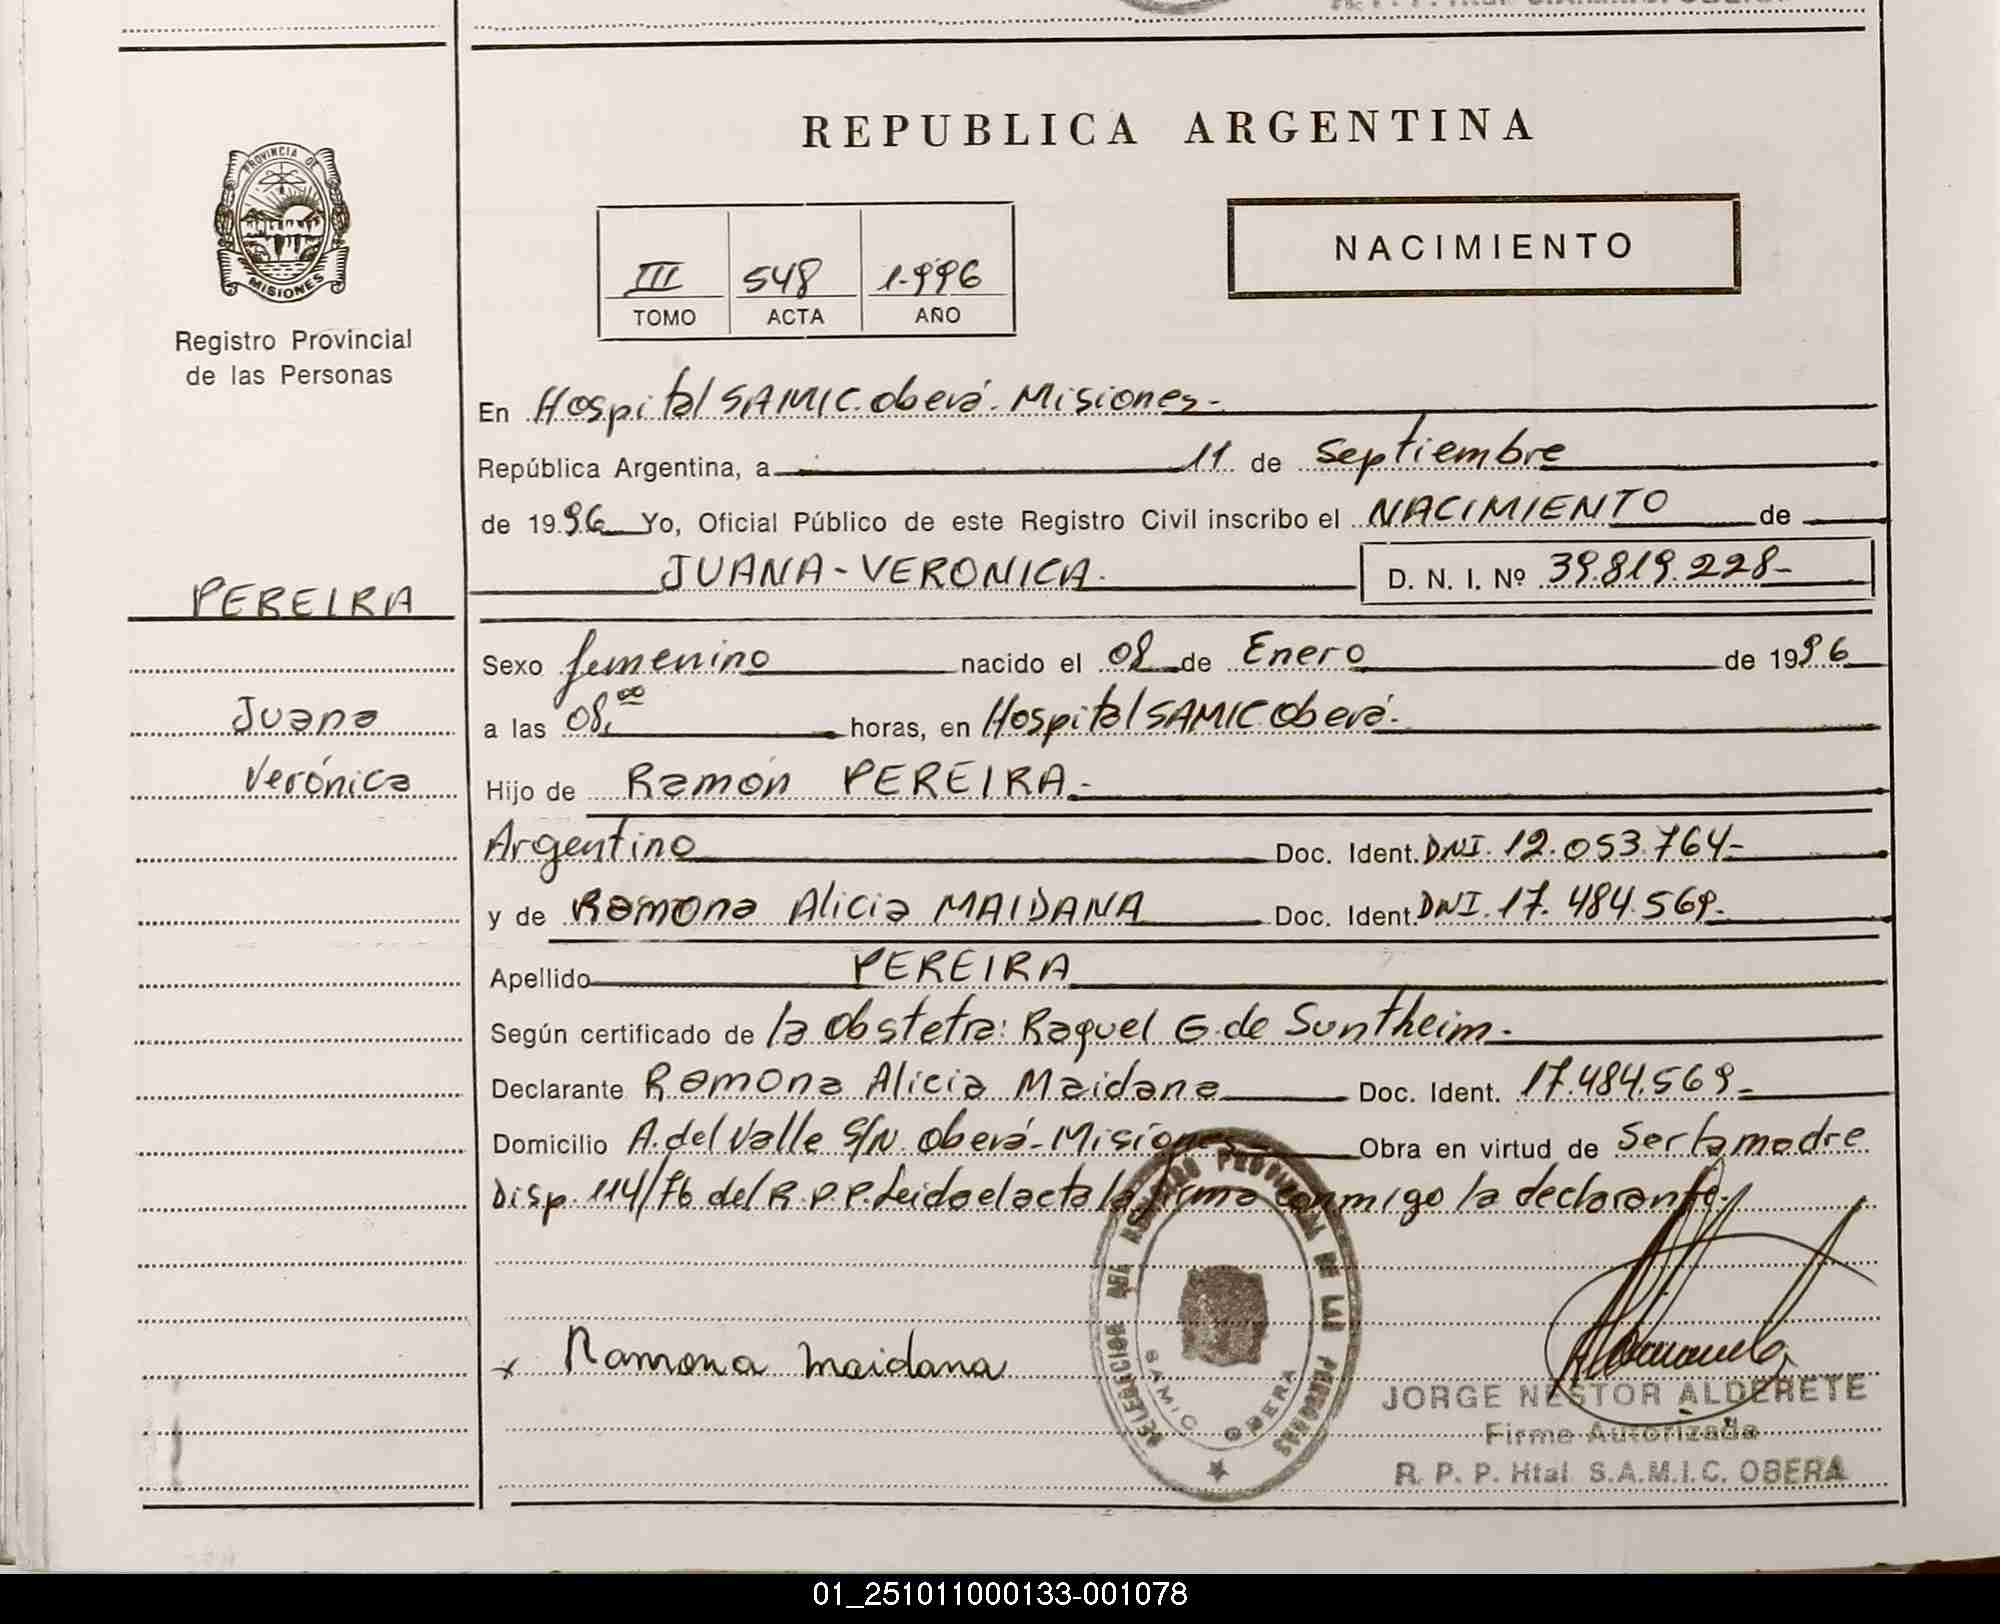 REPUBLICA ARGENTINA
PROVINCIA DE
MISIONES
Registro Provincial
de las Personas
III 548 1.996
TOMO ACTA AÑO
NACIMIENTO
En Hospital SAMIC. Oberá. Misiones-
República Argentina, a 11 de septiembre
de 1996 Yo, Oficial Público de este Registro Civil inscribo el NACIMIENTO de
JUANA-VERONICA. D. N. I. Nº 39.819.228-
PEREIRA
Juana
Verónica
Sexo femenino nacido el 08 de Enero de 1996
a las 08,00 horas, en Hospital SAMIC Oberá.
Hijo de Ramón PEREIRA.-
Argentino Doc. Ident. DNI. 12.053.764-
y de Ramona Alicia MAIDANA Doc. Ident. DNI. 17.484.569.
Apellido PEREIRA
Según certificado de la obstetra: Raquel G. de Suntheim.
Declarante Ramona Alicia Maidana Doc. Ident. 17.484.569-
Domicilio A. del Valle S/N. Oberá-Misiones Obra en virtud de Ser la madre
Disp. 114/76 del R.P.P. Leida el acta la firma conmigo la declarante.
x Ramona Maidana
DELEGACION DEL REGISTRO PROVINCIAL DE LAS PERSONAS
SAMIC OBERA
JORGE NESTOR ALDERETE
Firma Autorizada
R. P. P. Htal. S.A.M.I.C. OBERA
01_251011000133-001078